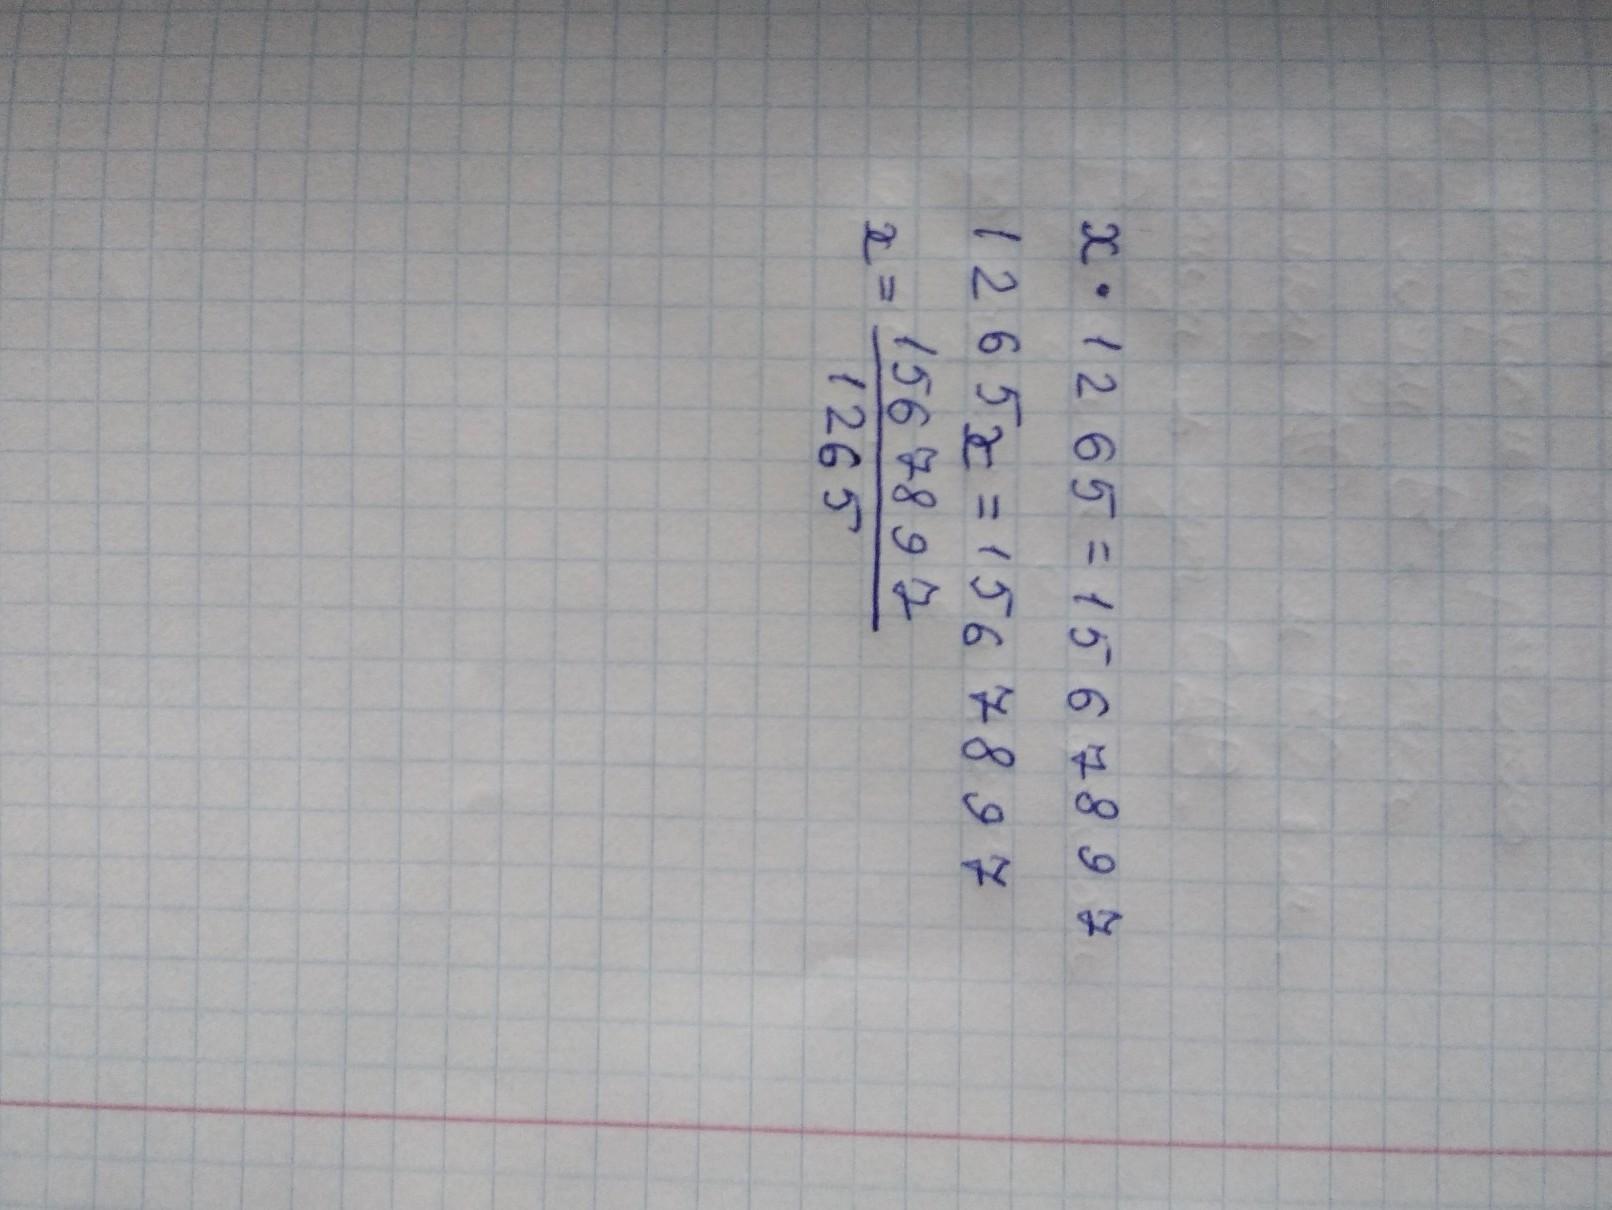 x · 1265 = 15678897
1265x = 15678897
x = 15678897
1265